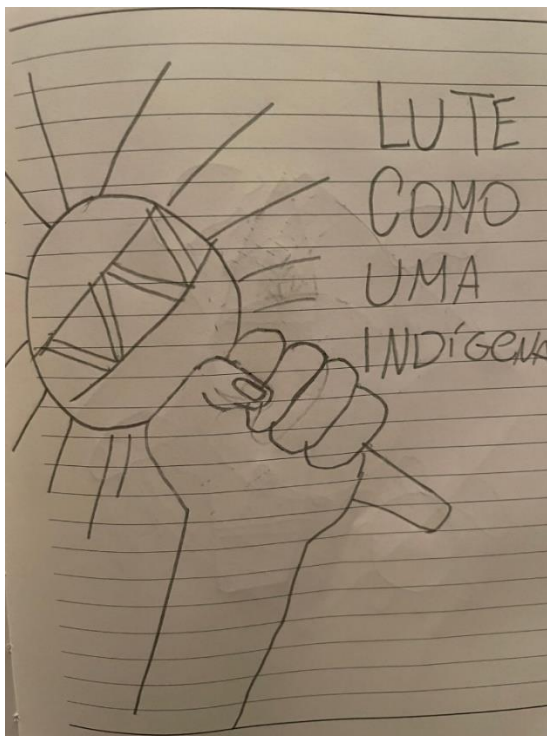 LUTE
COMO
UMA
INDÍGENA